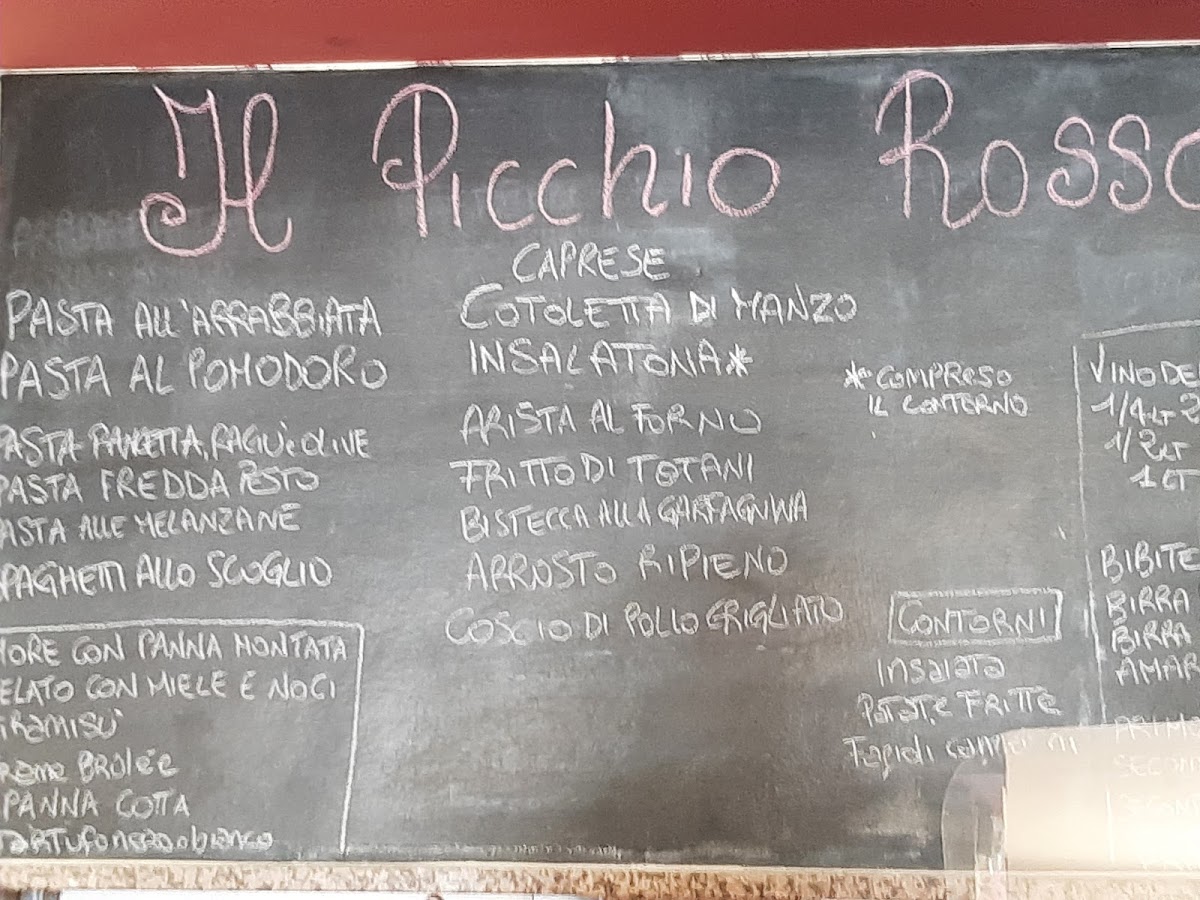 Il Picchio Rosso
PASTA ALL'ARRABBIATA
PASTA AL POMODORO
PASTA PANCETTA, RAGÙ e OLIVE
PASTA FREDDA PESTO
PASTA ALLE MELANZANE
SPAGHETTI ALLO SCOGLIO
MORE CON PANNA MONTATA
GELATO CON MIELE E NOCI
TIRAMISÙ
BRULÉE
PANNA COTTA
TARTUFO NERO O BIANCO
CAPRESE
COTOLETTA DI MANZO
INSALATONA*
ARISTA AL FORNO
FRITTO DI TOTANI
BISTECCA ALLA GARFAGNINA
ARROSTO RIPIENO
COSCIO DI POLLO GRIGLIATO
* COMPRESO
IL CONTORNO
CONTORNI
Insalata
Patate FRITTE
Fagioli
VINO DE
1/4 LT
1/2 LT
1 LT
BIBITE
BIRRA
BIRRA
AMAR
PRIMO
SECON